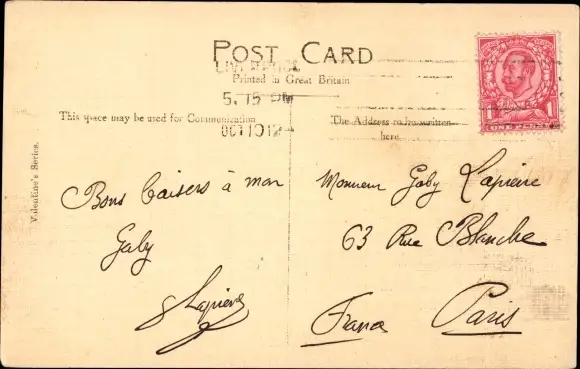 POST CARD
LIVERPOOL
Printed in Great Britain
5. 15 PM
OCT 10 12
This space may be used for Communication
The Address to be written
here.
Valentine's Series.
Bons baisers à mon
Gaby
Lapierre
Monsieur Gaby Lapierre
63 Rue Blanche
Paris
France
1 1
ONE PENNY